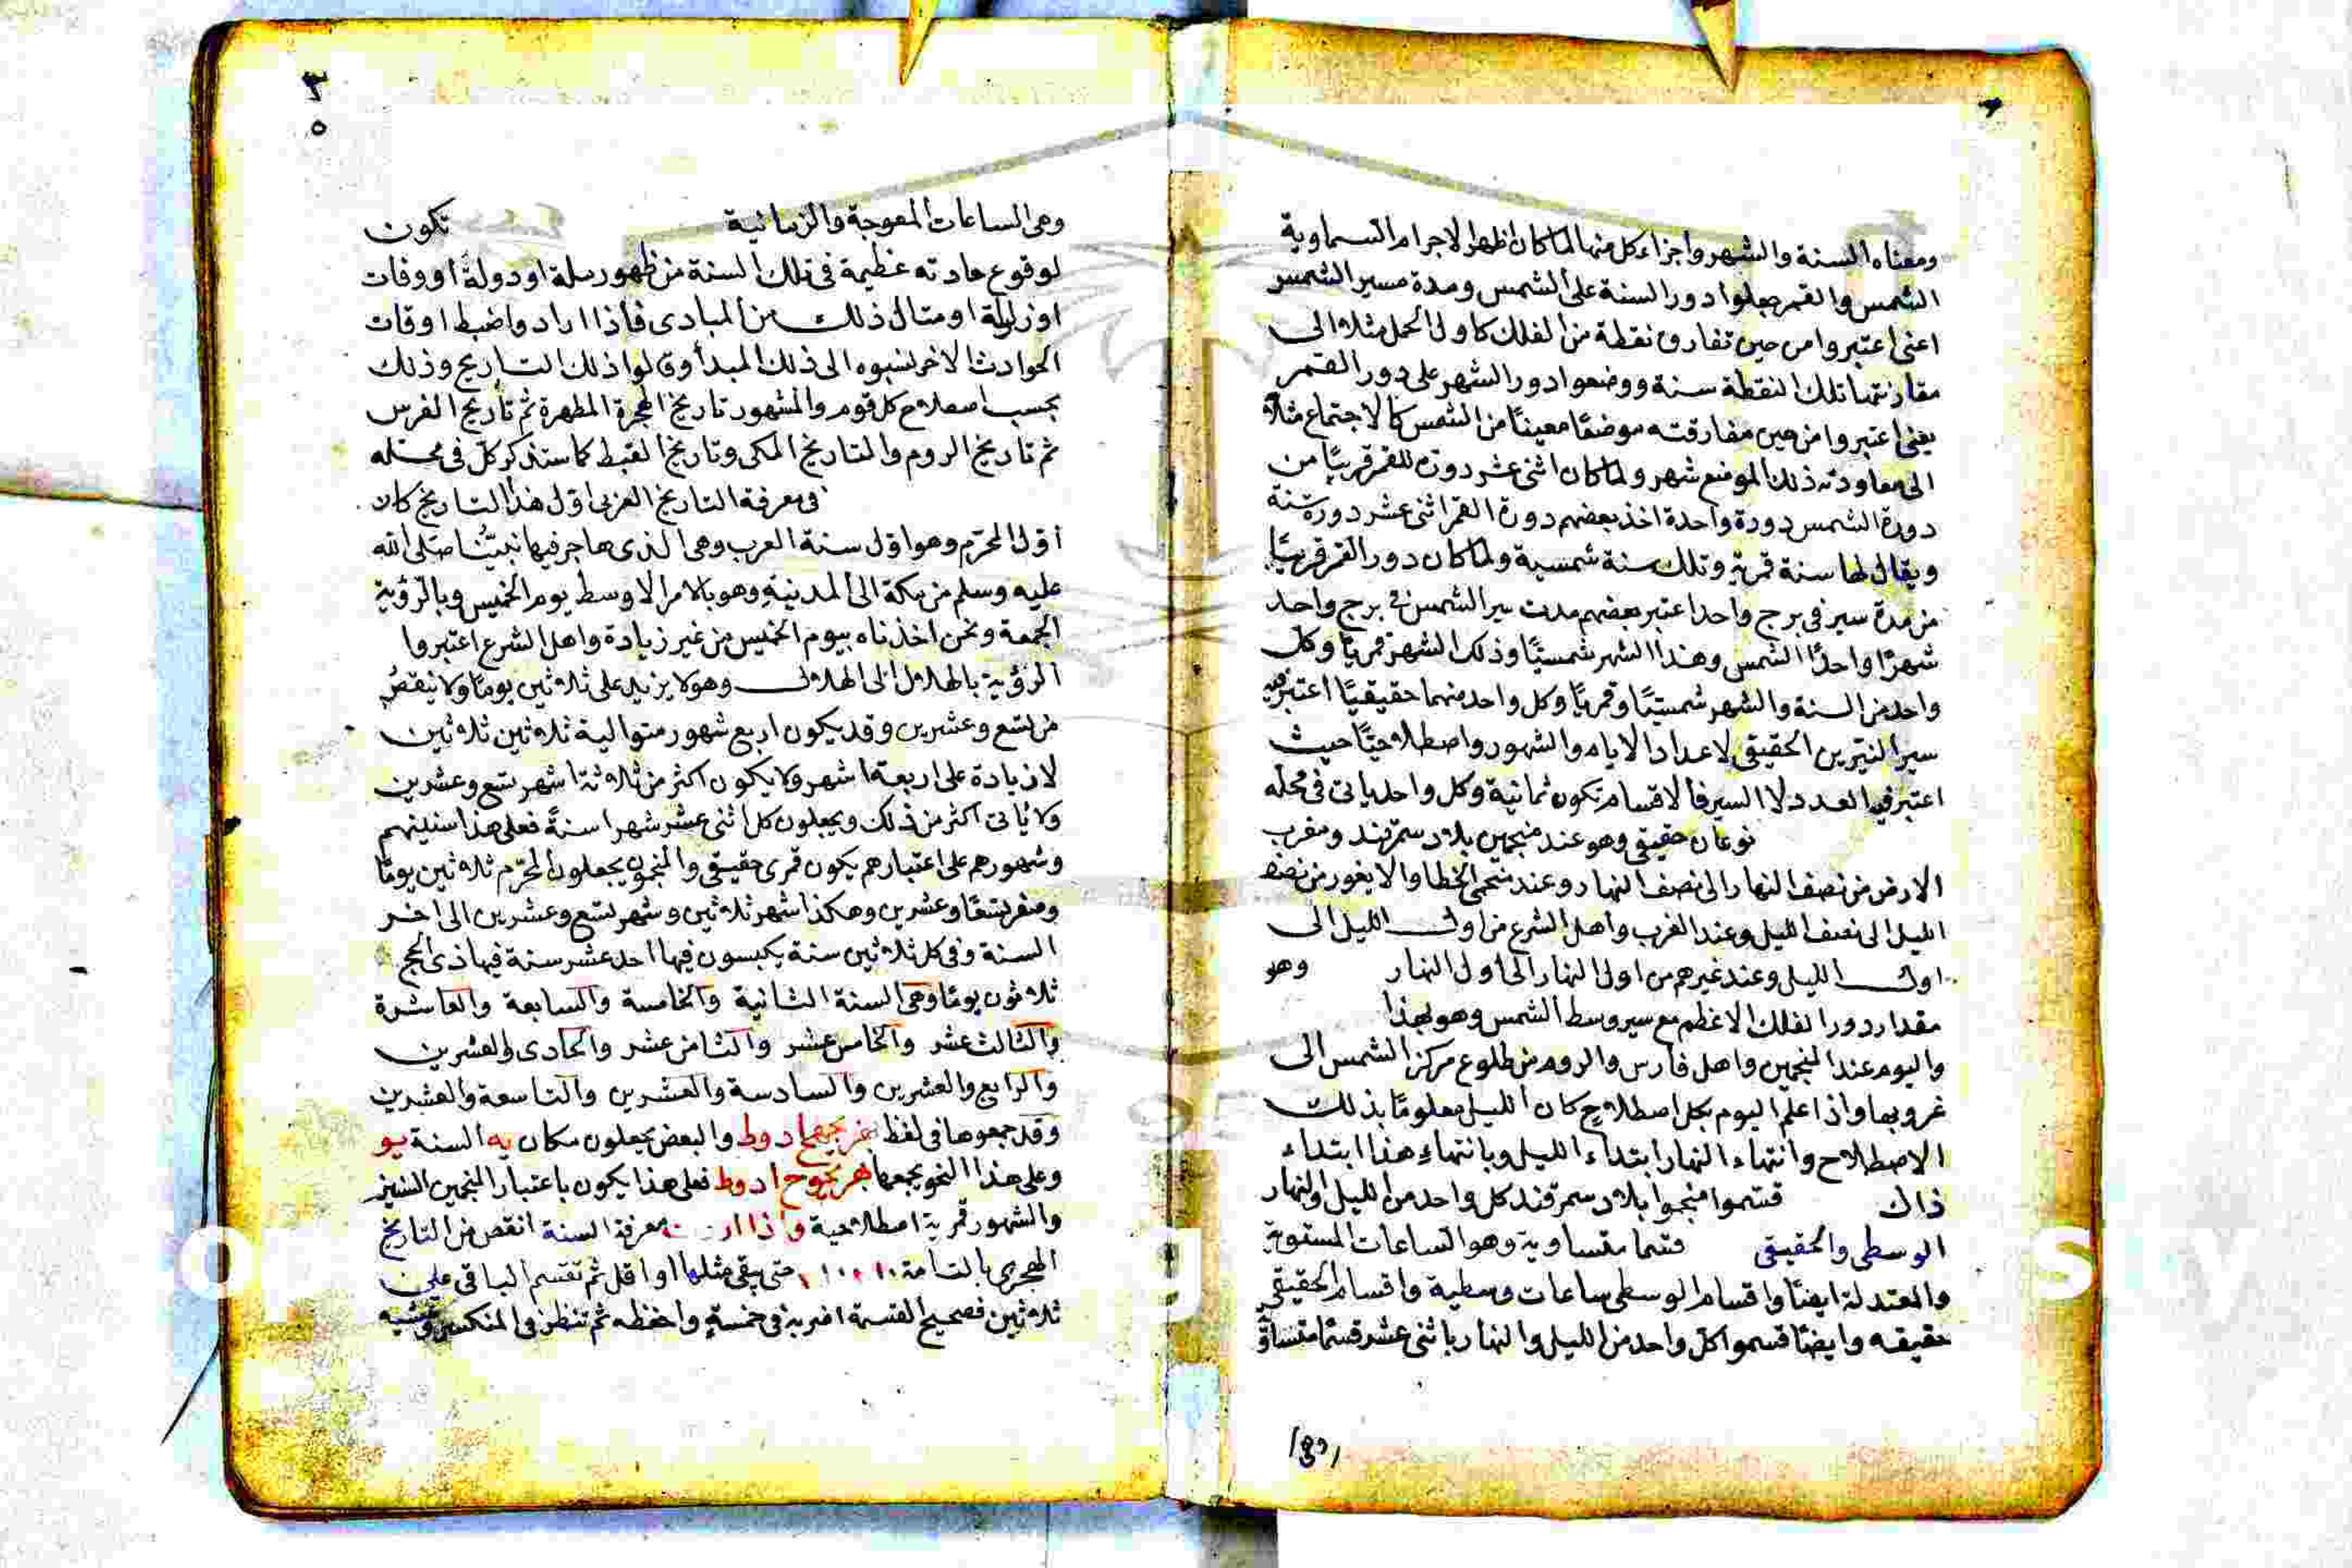 ومعناه السنة والشهر واجزاء كل منها لما كان اظهر الاجرام السماوية
الشمس والقمر جعلوا دور السنة على الشمس ومدة مسير الشمس
اعنى اعتبروا من حين تفارق نقطة من الفلك كاول الحمل مثلا الى
مقارنتها تلك النقطة سنة ووضعوا دور الشهر على دور القمر
يعنى اعتبروا من حين مفارقته موضعًا معينًا من الشمس كالاجتماع مثلا
الى معاودته ذلك الموضع شهر ولما كان اثنى عشر دورة للقمر قريبًا من
دورة الشمس دورة واحدة اخذ بعضهم دورة القمر اثنى عشر دورة سنة
ويقال لها سنة قمرية وتلك سنة شمسية ولما كان دور القمر قريبًا
من مدة سير فى برج واحد اعتبر بعضهم مدت سير الشمس فى برج واحد
شهرًا واحدًا الشمس وهذا الشهر شمسيًا وذلك الشهر قمريًا وكل
واحد من السنة والشهر شمسيًا وقمريًا وكل واحد منهما حقيقيًا اعتبر فيه
سير النيرين الحقيقى لاعداد الايام والشهور واصطلاحيًا حيث
اعتبر فيه العدد لا السير فالاقسام تكون ثمانية وكل واحد ياتى فى محله
نوعان حقيقى وهو عند منجمين بلاد سمرقند ومغرب
الارض من نصف النهار الى نصف النهار وعند منجمى الخطا والايغور من نصف
الليل الى نصف الليل وعند العرب واهل الشرع من اول الليل الى
اول الليل وعند غيرهم من اول النهار الى اول النهار وهو
مقدار دور الفلك الاعظم مع سير وسط الشمس وهو بهذا
واليوم عند المنجمين واهل فارس والروم من طلوع مركز الشمس الى
غروبها واذا علم اليوم بكل اصطلاح كان الليل معلومًا بذلك
الاصطلاح وانتهاء النهار ابتداء الليل وبانتهاء هذا ابتداء
ذاك قسموا منجموا بلاد سمرقند كل واحد من الليل والنهار
الوسطى والحقيقى قسما متساوية وهو الساعات المستوية
والمعتدلة ايضًا واقسام الوسطى ساعات وسطية واقسام الحقيقى
حقيقه وايضًا قسموا كل واحد من الليل والنهار باثنى عشر قسمًا متساوية
وهى الساعات المعوجة والزمانية تكون
لوقوع حادثه عظيمة فى تلك السنة من ظهور ملة او دولة او وفات
او زلزلة او مثال ذلك من المبادى فاذا ارادوا ضبط اوقات
الحوادث الاخر نسبوه الى ذلك المبدأ وقالوا ذلك التاريخ وذلك
بحسب اصطلاح كل قوم والمشهور تاريخ الهجرة المطهرة ثم تاريخ الفرس
ثم تاريخ الروم والتاريخ الملكى وتاريخ القبط كما ستذكر كل فى محله
فى معرفة التاريخ العربى اول هذا التاريخ كان
اول المحرم وهو اول سنة العرب وهى الذى هاجر فيها نبيّنا صلى الله
عليه وسلم من مكة الى المدينة وهو بالامر الاوسط يوم الخميس وبالرؤية
الجمعة ونحن اخذناه بيوم الخميس من غير زيادة واهل الشرع اعتبروا
الرؤية بالهلال الى الهلال وهو لا يزيد على ثلاثين يومًا ولا ينقص
من تسع وعشرين وقد يكون اربع شهور متوالية ثلاثين ثلاثين
لا زيادة على اربعة اشهر ولا يكون اكثر من ثلاثة اشهر تسع وعشرين
ولا ياتى اكثر من ذلك ويجعلون كل اثنى عشر شهرا سنةً فعلى هذا سنينهم
وشهورهم على اعتبارهم يكون قمرى حقيقى والمنجمون يجعلون المحرّم ثلاثين يومًا
وصفر تسعًا وعشرين وهكذا شهر ثلاثين وشهر تسع وعشرين الى اخر
السنة وفى كل ثلاثين سنة يكبسون فيها احد عشر سنة فيها ذى الحج
ثلاثون يومًا وهى السنة الثانية والخامسة والسابعة والعاشرة
والثالث عشر والخامس عشر والثامن عشر والحادى والعشرين
والرابع والعشرين والسادسة والعشرين والتاسعة والعشرين
وقد جمعوها فى لفظ والبعض يجعلون مكان يه السنة يو
وعلى هذا النحو يجمعها فعلى هذا يكون باعتبار المنجمين السنين
والشهور قمرية اصطلاحية واذا معرفة السنة انقص من التاريخ
الهجرى بالتامة حتى يبقى مثلها او اقل ثم تقسم الباقى على
ثلاثين فصحيح القسمة اضربه فى خمسةٍ واحفظه ثم تنظر فى المنكسر